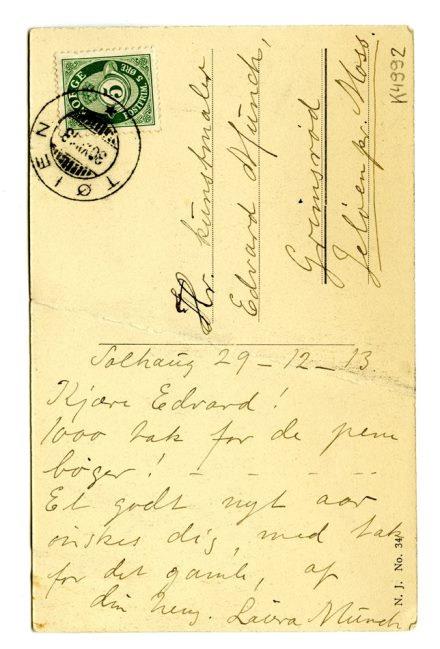 Hr. kunstmaler
Edvard Munch,
Grimsrød
Jeløen pr. Moss.
K4992
NORGE
5
5 ØRE
TØIEN
30 XII 13
Solhaug 29 – 12 – 13.
Kjære Edvard!
1000 tak for de pene
bøger! – – – – –
Et godt nyt aar
ønskes dig, med tak
for det gamle, af
din heng. Laura Munch
N. J. No. 34